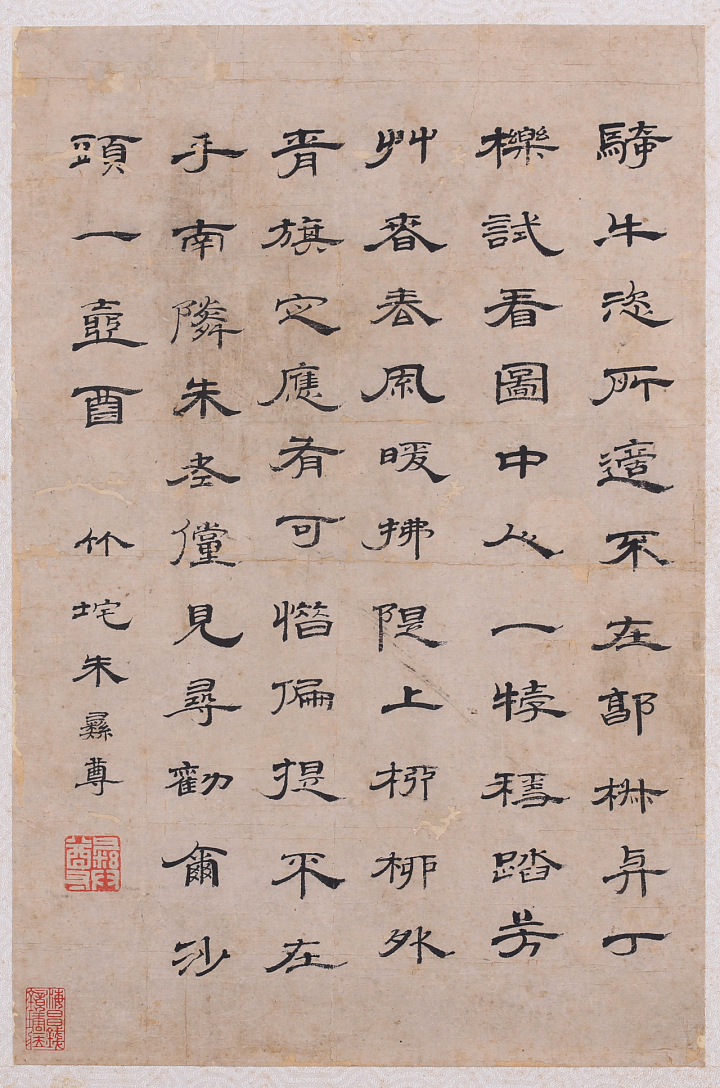 騎牛恣所適不在郭椒與丁
櫟試看圖中人一牸穩踏芳
艸脊春風暖拂隄上柳柳外
青旗定應有可惜偏提不在
手南隣朱老儻見尋勸爾沙
頭一壺酉 竹垞朱彝尊